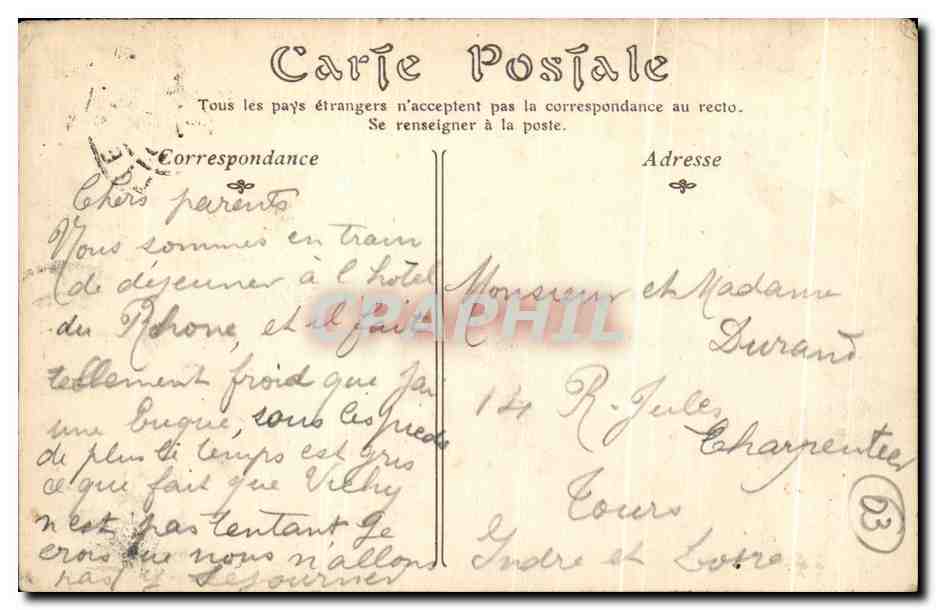 Carte Postale
Tous les pays étrangers n'acceptent pas la correspondance au recto.
Se renseigner à la poste.
Correspondance
Chers parents
Nous sommes en train
de déjeuner à l'hôtel
du Rhone, et il fait
tellement froid que j'ai
une brique, sous les pieds
de plus le temps est gris
ce que fait que Vichy
n'est pas tentant Je
crois que nous n'allons
pas y séjourner
Adresse
Monsieur et Madame
Durand
14 R. Jules
Charpentier
Tours
Indre et Loire
CPAPHIL